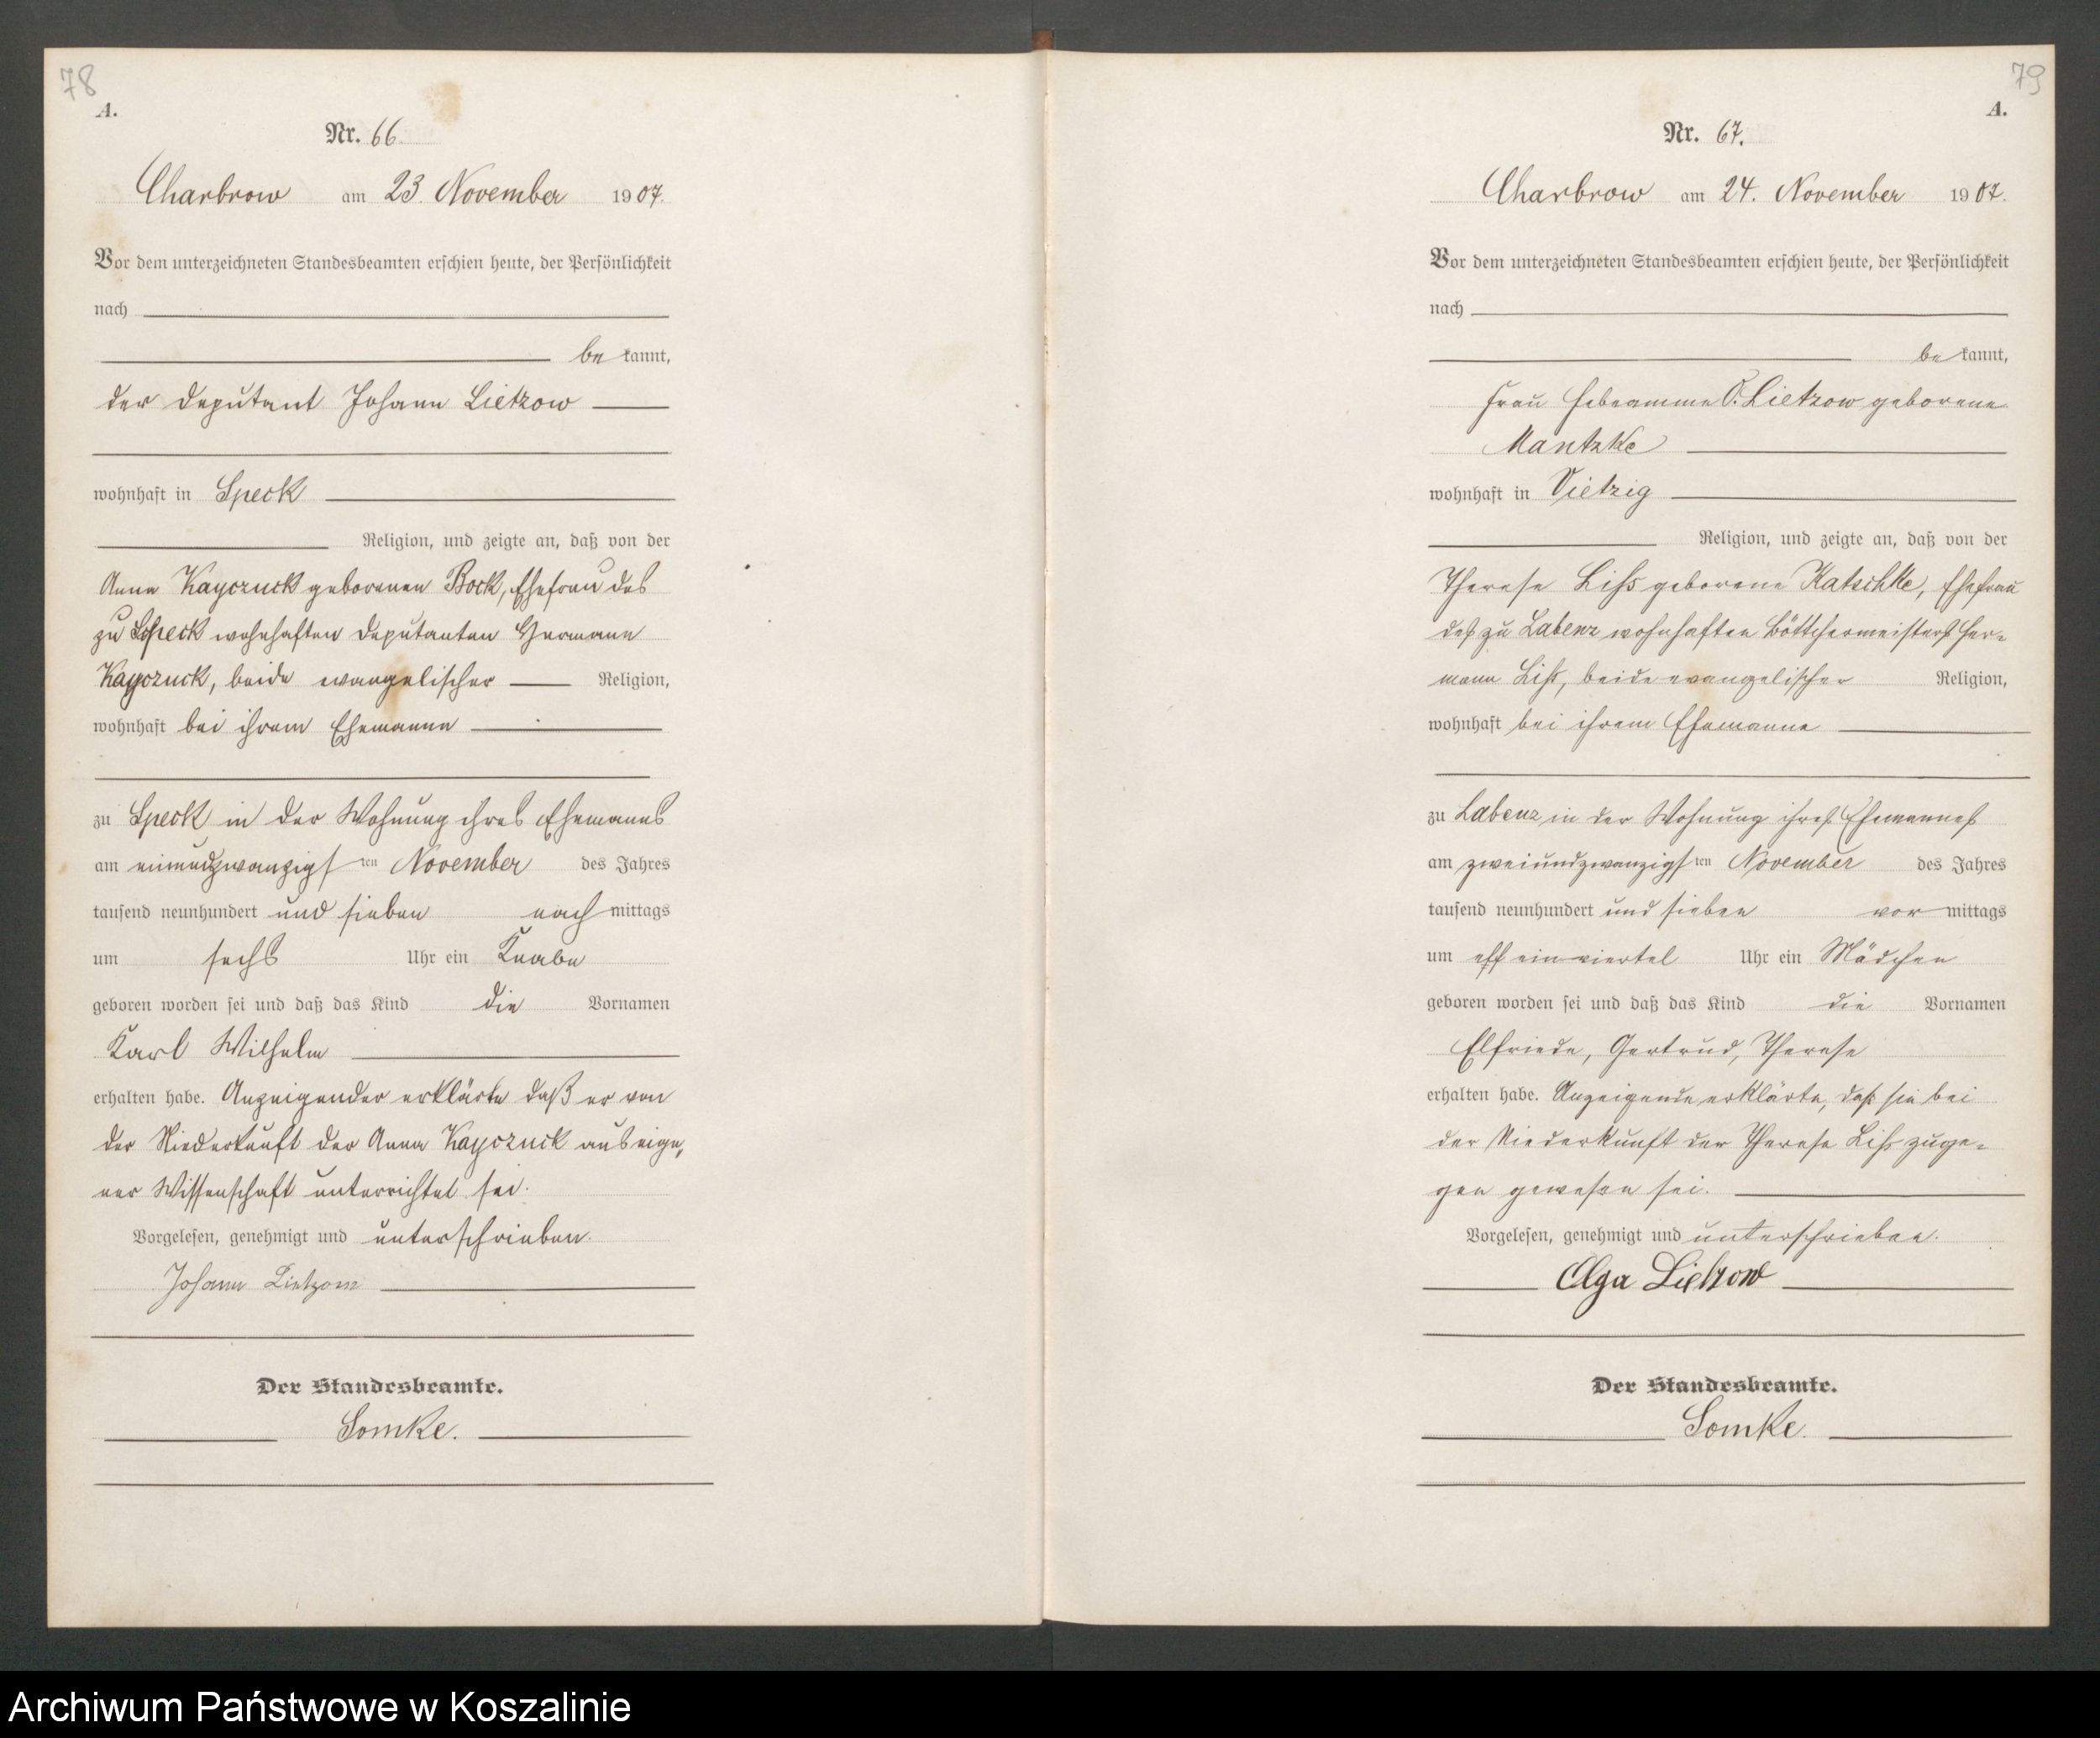 78
A.
Nr. 66.
Charbrow am 23. November 1907.
Vor dem unterzeichneten Standesbeamten erschien heute, der Persönlichkeit
nach
bekannt,
der Deputant Johann Lietzow
wohnhaft in Speck
Religion, und zeigte an, daß von der
Anna Kayczuck geborenen Bock, Ehefrau des
zu Speck wohnhaften Deputanten Hermann
Kayczuck, beide evangelischer Religion,
wohnhaft bei ihrem Ehemanne
zu Speck in der Wohnung ihres Ehemanns
am einundzwanzigsten November des Jahres
tausend neunhundert und sieben nachmittags
um sechs Uhr ein Knabe
geboren worden sei und daß das Kind die Vornamen
Karl Wilhelm
erhalten habe. Anzeigender erklärte daß er von
der Niederkunft der Anna Kayczuck aus eige-
ner Wissenschaft unterrichtet sei.
Vorgelesen, genehmigt und unterschrieben.
Johann Lietzow
Der Standesbeamte.
Somke.
79
A.
Nr. 67.
Charbrow am 24. November 1907.
Vor dem unterzeichneten Standesbeamten erschien heute, der Persönlichkeit
nach
bekannt,
Frau Hebeamme O. Lietzow geborene
Mantzke
wohnhaft in Vietzig
Religion, und zeigte an, daß von der
Therese Liß geborene Katschke, Ehefrau
des zu Labenz wohnhaften Böttchermeisters Her-
mann Liß, beide evangelischer Religion,
wohnhaft bei ihrem Ehemanne
zu Labenz in der Wohnung ihres Ehemannes
am zweiundzwanzigsten November des Jahres
tausend neunhundert und sieben vormittags
um elf einviertel Uhr ein Mädchen
geboren worden sei und daß das Kind die Vornamen
Elfriede, Gertrud, Therese
erhalten habe. Anzeigende erklärte, daß sie bei
der Niederkunft der Therese Liß zuge-
gen gewesen sei.
Vorgelesen, genehmigt und unterschrieben.
Olga Lietzow
Der Standesbeamte.
Somke.
Archiwum Państwowe w Koszalinie